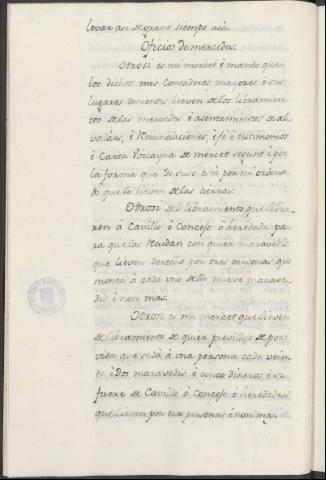 levar asi de grant tiempo acá.
Oficios de mercedes.
Otrosi es mi merced é mando que
los dichos mis Contadores mayores ó sus
lugares tenientes lieven de los libramien
tos de las mercedes é asentamientos de al
valáes, é renunciaciones, é fé é testimonios
é Carta Vizcayna de merced segunt é por
la forma que de suso está por mi ordena
do que lo lieven de las tierras.
Otrosi de libramiento que libra
ren á Cavillo ó Concejo ó heredades pa
ra que les recudan con quier maravedis
que lieven derecho por tres personas que
monta á cada uno dello nueve marave
dis é non mas.
Otrosi es mi merced que lieven
de libramiento de quier previllejo de por
vida que sea á una persona cada vein
te é dos maravedis é cinco dineros, é si
fuere de Cavillo ó Concejo ó heredades
que lieven por tres personas é non mas.